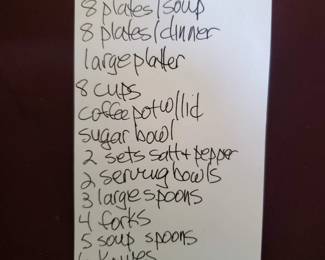 8 plates/soup
8 plates/dinner
large platter
8 cups
coffee pot w/lid
sugar bowl
2 sets salt + pepper
2 serving bowls
3 large spoons
4 forks
5 soup spoons
knives